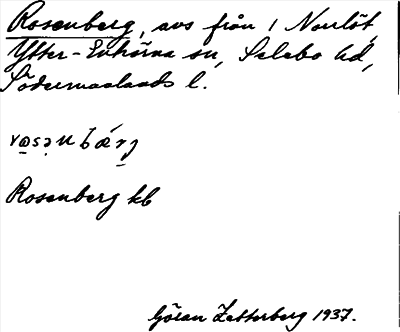 Rosenberg, avs från 1 Norrlöt,
Ytter-Enhörna sn, Selebo hd,
Södermanlands l.
Rosenberg kb
Göran Zetterberg 1937.